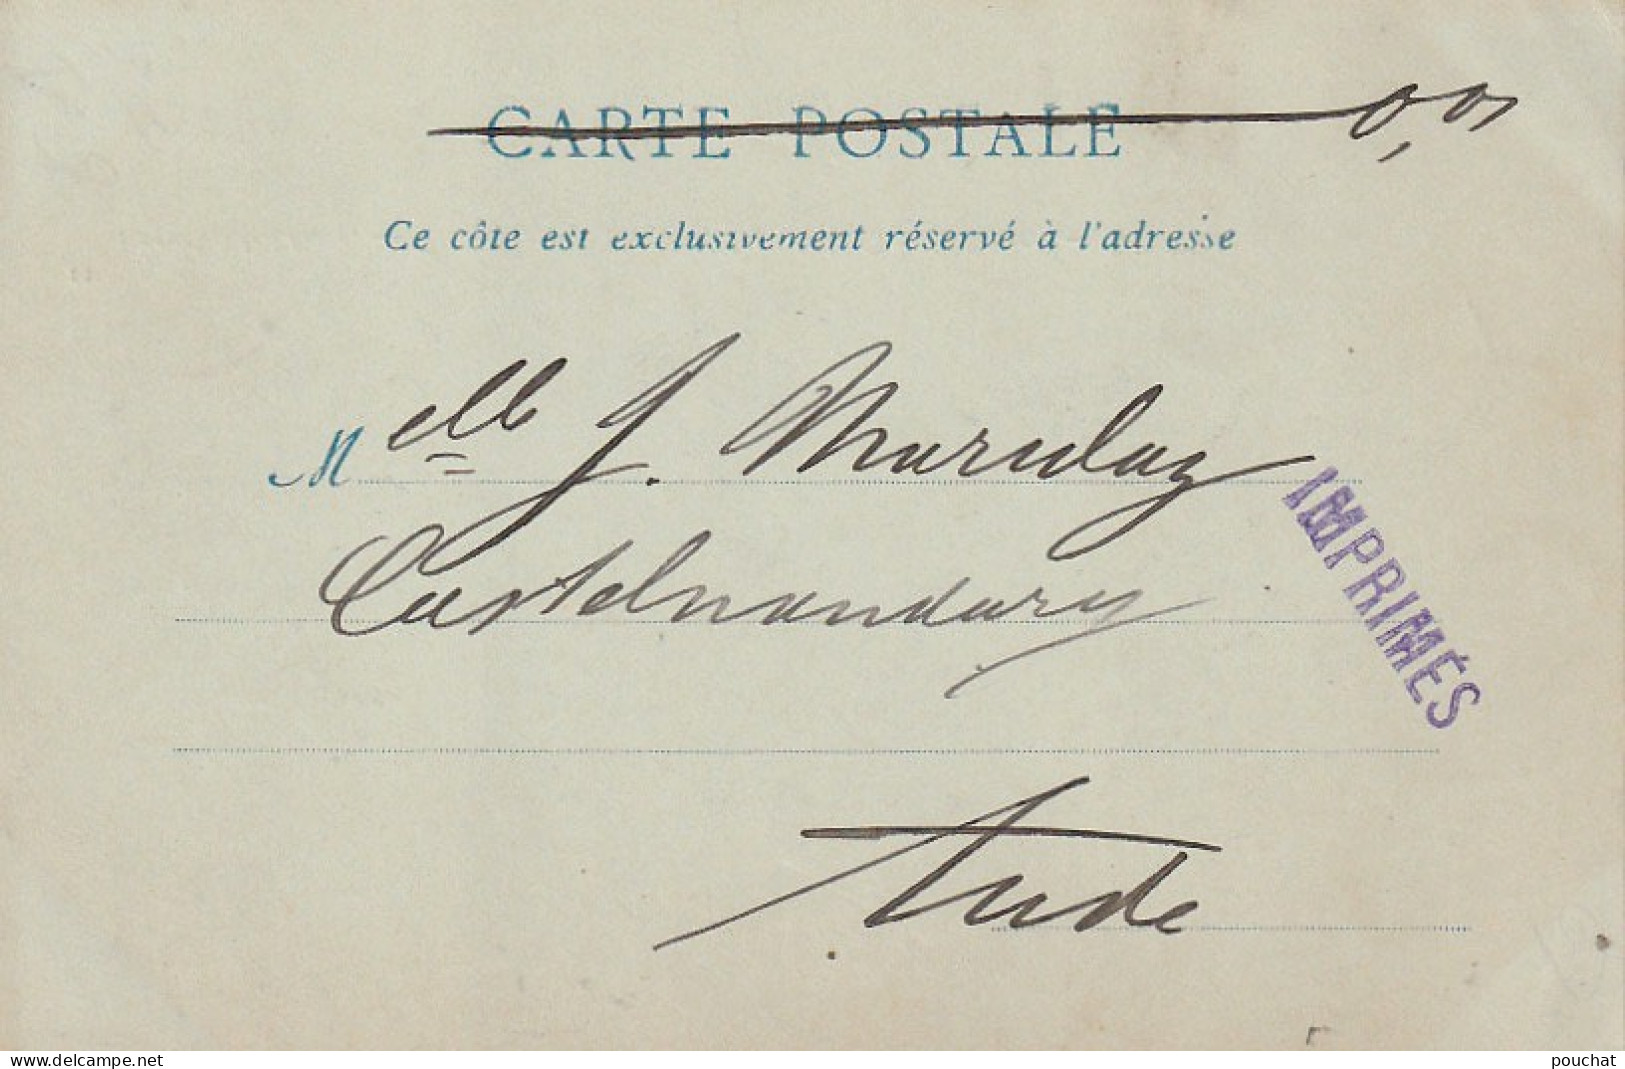 CARTE POSTALE 0,01
Ce côté est exclusivement réservé à l'adresse
Melle J. Marulaz
Castelnaudary
IMPRIMÉS
Aude
www.delcampe.net
pouchat